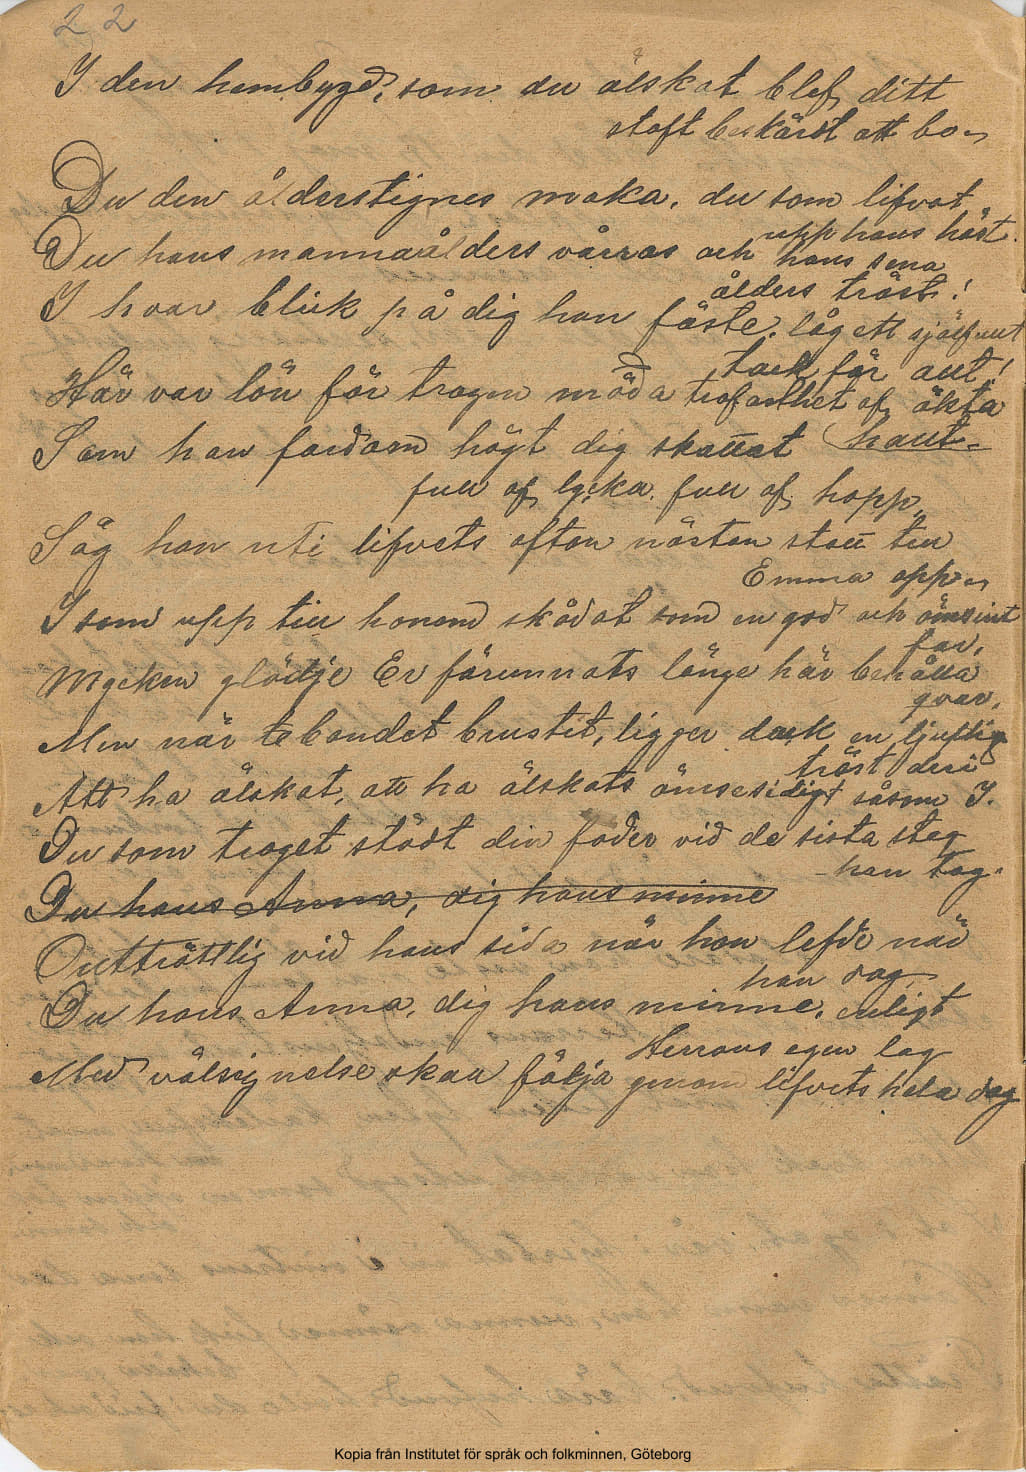 22
I den hembygd, som du älskat blef ditt
stoft beskärdt att bo
Du den ålderstignes maka, du som lifvat
upp hans höst.
Du hans mannaålders vårros och hans sena
ålders tröst!
I hvar blick på dig han fäste, låg ett själfullt
tack för allt!
Här var lön för trogen möda trofasthet af äkta
halt.
Som han fordom högt dig skattat
full af lycka, full af hopp,
Såg han uti lifvets afton nästan stolt till
Emma opp
I som upp till honom skådat som en god och ömsint
far,
Mycken glädje Er förunnats länge här behålla
qvar,
Men när bandet brustit, ligger dock en ljuflig
tröst deri
Att ha älskat, att ha älskats ömsesidigt såsom I.
Du som troget stödt din fader vid de sista steg
han tog.
Du hans Anna, dig hans minne
Outtröttlig vid hans sida när han lefde när
han dog
Du hans Anna, dig hans minne, enligt
Herrans egen lag
Med välsignelse skall följa genom lifvets hela dag
Kopia från Institutet för språk och folkminnen, Göteborg